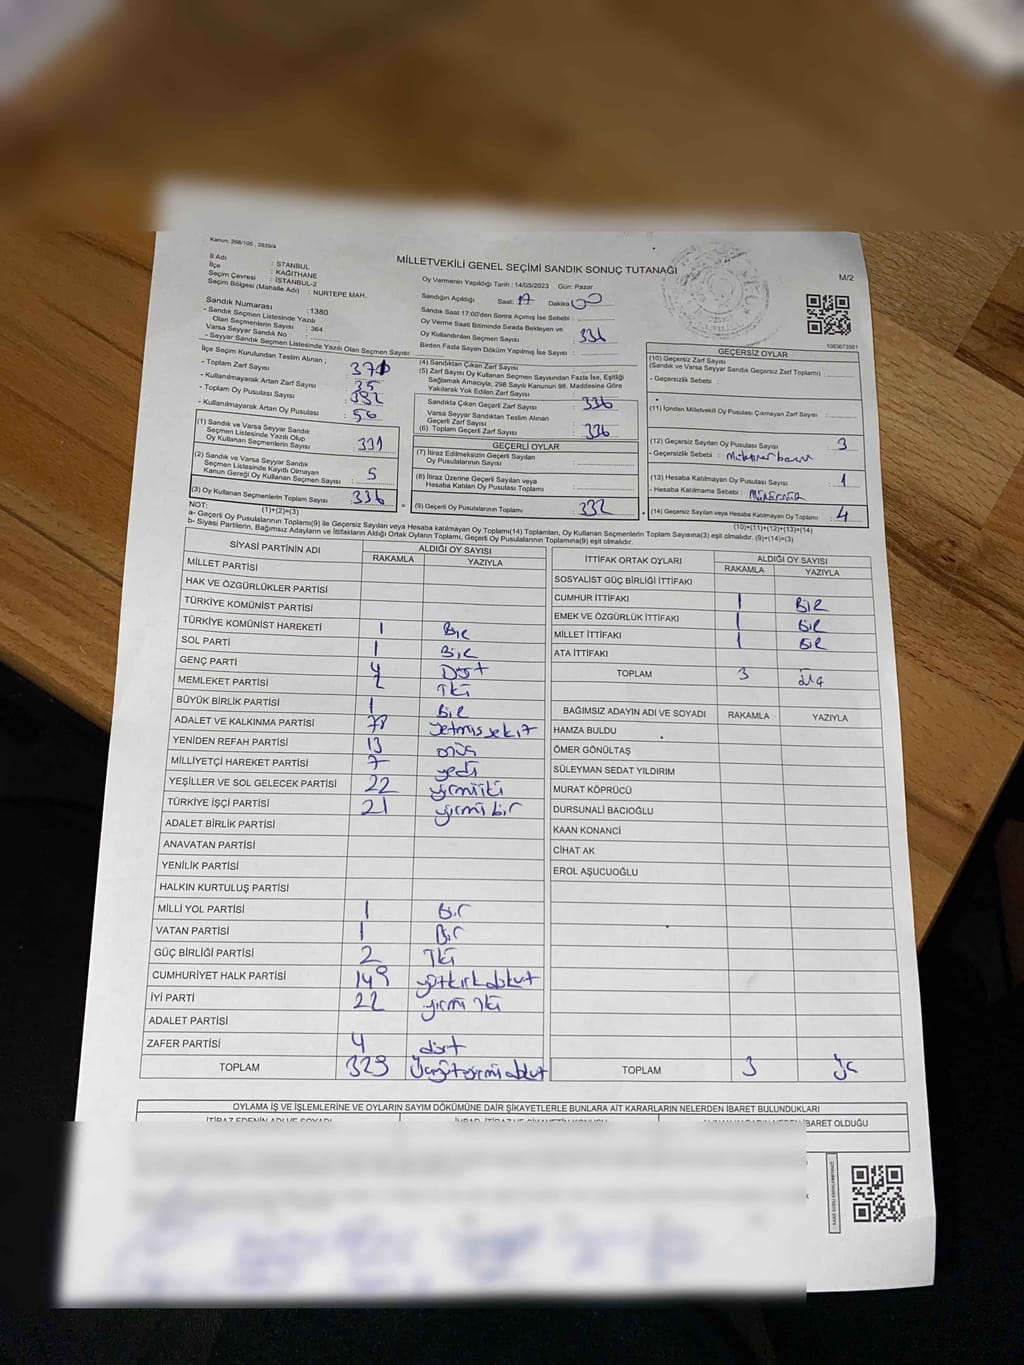 Kanun: 298/105 , 2839/4
MİLLETVEKİLİ GENEL SEÇİMİ SANDIK SONUÇ TUTANAĞI
M/2
İl Adı : İSTANBUL
İlçe : KAĞITHANE
Seçim Çevresi : İSTANBUL-2
Seçim Bölgesi (Mahalle Adı) : NURTEPE MAH.
Sandık Numarası : 1380
- Sandık Seçmen Listesinde Yazılı
Olan Seçmenlerin Sayısı : 364
Varsa Seyyar Sandık No :
- Seyyar Sandık Seçmen Listesinde Yazılı Olan Seçmen Sayısı:
İlçe Seçim Kurulundan Teslim Alınan ;
- Toplam Zarf Sayısı :
- Kullanılmayarak Artan Zarf Sayısı : 35
- Toplam Oy Pusulası Sayısı :
- Kullanılmayarak Artan Oy Pusulası : 56
(1) Sandık ve Varsa Seyyar Sandık
Seçmen Listesinde Yazılı Olup
Oy Kullanan Seçmenlerin Sayısı : 331
(2) Sandık ve Varsa Seyyar Sandık
Seçmen Listesinde Kayıtlı Olmayan
Kanun Gereği Oy Kullanan Seçmen Sayısı : 5
(3) Oy Kullanan Seçmenlerin Toplam Sayısı : 336
(1)+(2)=(3)
Oy Vermenin Yapıldığı Tarih : 14/05/2023 Gün: Pazar
Sandığın Açıldığı Saat: 17 Dakika 00
Sandık Saat 17:00'den Sonra Açılmış İse Sebebi :
Oy Verme Saati Bitiminde Sırada Bekleyen ve
Oy Kullandırılan Seçmen Sayısı : 336
Birden Fazla Sayım Döküm Yapılmış İse Sayısı :
(4) Sandıktan Çıkan Zarf Sayısı :
(5) Zarf Sayısı Oy Kullanan Seçmen Sayısından Fazla İse, Eşitliği
Sağlamak Amacıyla, 298 Sayılı Kanunun 98. Maddesine Göre
Yakılarak Yok Edilen Zarf Sayısı :
Sandıkta Çıkan Geçerli Zarf Sayısı : 336
Varsa Seyyar Sandıktan Teslim Alınan
Geçerli Zarf Sayısı :
(6) Toplam Geçerli Zarf Sayısı : 336
GEÇERLİ OYLAR
(7) İtiraz Edilmeksizin Geçerli Sayılan
Oy Pusulalarının Sayısı :
(8) İtiraz Üzerine Geçerli Sayılan veya
Hesaba Katılan Oy Pusulası Toplamı :
= (9) Geçerli Oy Pusulalarının Toplamı : 332 +
1083673561
GEÇERSİZ OYLAR
(10) Geçersiz Zarf Sayısı
(Sandık ve Varsa Seyyar Sandık Geçersiz Zarf Toplamı) :
- Geçersizlik Sebebi :
(11) İçinden Milletvekili Oy Pusulası Çıkmayan Zarf Sayısı :
(12) Geçersiz Sayılan Oy Pusulası Sayısı : 3
- Geçersizlik Sebebi :
(13) Hesaba Katılmayan Oy Pusulası Sayısı : 1
- Hesaba Katılmama Sebebi : Mühürsüz
(14) Geçersiz Sayılan veya Hesaba Katılmayan Oy Toplamı : 4
(10)+(11)+(12)+(13)=(14)
NOT:
a- Geçerli Oy Pusulalarının Toplamı(9) ile Geçersiz Sayılan veya Hesaba katılmayan Oy Toplamı(14) Toplamları, Oy Kullanan Seçmenlerin Toplam Sayısına(3) eşit olmalıdır. (9)+(14)=(3)
b- Siyasi Partilerin, Bağımsız Adayların ve İttifakların Aldığı Ortak Oyların Toplamı, Geçerli Oy Pusulalarının Toplamına(9) eşit olmalıdır.
SİYASİ PARTİNİN ADI ALDIĞI OY SAYISI
RAKAMLA YAZIYLA
MİLLET PARTİSİ
HAK VE ÖZGÜRLÜKLER PARTİSİ
TÜRKİYE KOMÜNİST PARTİSİ
TÜRKİYE KOMÜNİST HAREKETİ 1 Bir
SOL PARTİ 1 Bir
GENÇ PARTİ 4 Dört
MEMLEKET PARTİSİ 2 İki
BÜYÜK BİRLİK PARTİSİ 1 Bir
ADALET VE KALKINMA PARTİSİ 78 yetmiş sekiz
YENİDEN REFAH PARTİSİ 13 onüç
MİLLİYETÇİ HAREKET PARTİSİ 7 yedi
YEŞİLLER VE SOL GELECEK PARTİSİ 22 yirmi iki
TÜRKİYE İŞÇİ PARTİSİ 21 yirmi bir
ADALET BİRLİK PARTİSİ
ANAVATAN PARTİSİ
YENİLİK PARTİSİ
HALKIN KURTULUŞ PARTİSİ
MİLLİ YOL PARTİSİ 1 Bir
VATAN PARTİSİ 1 Bir
GÜÇ BİRLİĞİ PARTİSİ 2 İki
CUMHURİYET HALK PARTİSİ 149 yüzkırkdokuz
İYİ PARTİ 22 yirmi iki
ADALET PARTİSİ
ZAFER PARTİSİ 4 dört
TOPLAM 329 Üçyüzyirmidokuz
İTTİFAK ORTAK OYLARI ALDIĞI OY SAYISI
RAKAMLA YAZIYLA
SOSYALİST GÜÇ BİRLİĞİ İTTİFAKI
CUMHUR İTTİFAKI 1 Bir
EMEK VE ÖZGÜRLÜK İTTİFAKI 1 Bir
MİLLET İTTİFAKI 1 Bir
ATA İTTİFAKI
TOPLAM 3 Üç
BAĞIMSIZ ADAYIN ADI VE SOYADI RAKAMLA YAZIYLA
HAMZA BULDU
ÖMER GÖNÜLTAŞ
SÜLEYMAN SEDAT YILDIRIM
MURAT KÖPRÜCÜ
DURSUNALİ BACIOĞLU
KAAN KONANCİ
CİHAT AK
EROL AŞUCUOĞLU
TOPLAM 3 üç
OYLAMA İŞ VE İŞLEMLERİNE VE OYLARIN SAYIM DÖKÜMÜNE DAİR ŞİKAYETLERLE BUNLARA AİT KARARLARIN NELERDEN İBARET BULUNDUKLARI
İTİRAZ EDENİN ADI VE SOYADI
İBARET OLDUĞU